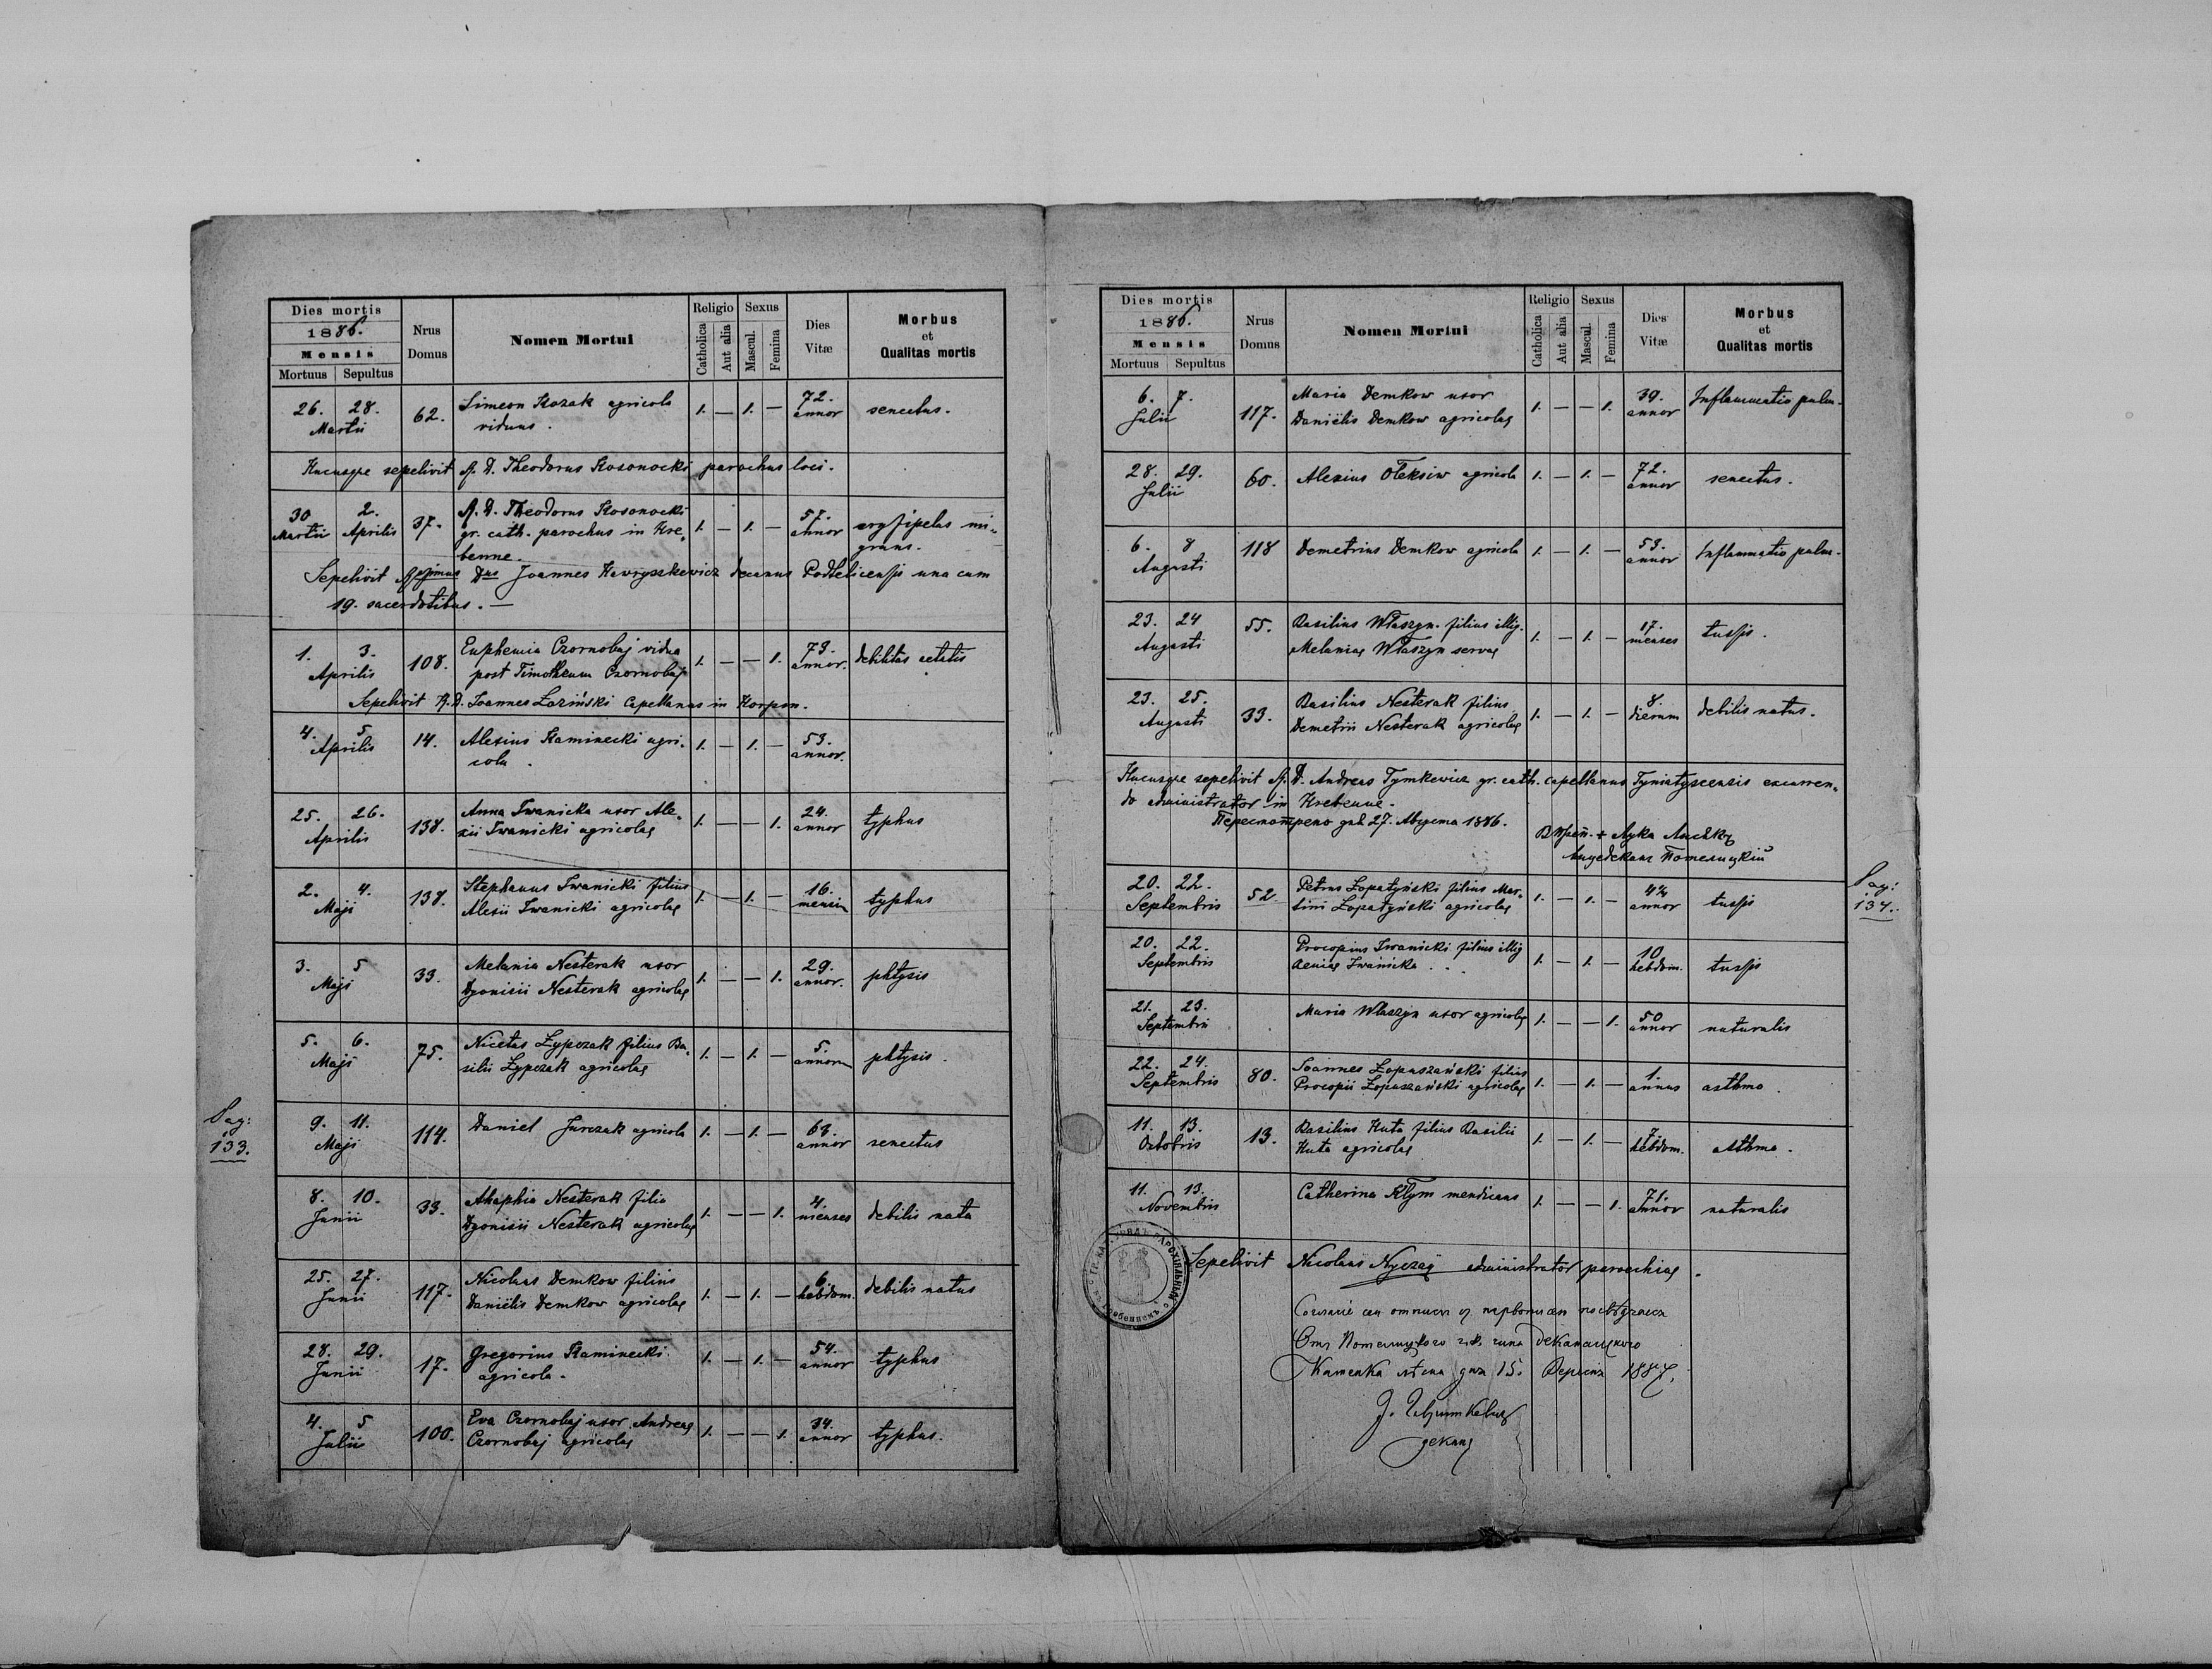 Dies mortis
1886.
Mensis
Mortuus Sepultus
Nrus Domus
Nomen Mortui
Religio
Catholica
Aut alia
Sexus
Mascul.
Femina
Dies Vitæ
Morbus et Qualitas mortis
26. 28. 62. Simeon Kozak agricola 1. — 1. — 72. senectus.
Martii viduus. annor
Hucusqe sepelivit A. D. Theodorus Kosonocki parochus loci.
30 2. 37. A. D. Theodorus Kosonocki 1. — 1. — 57. erysipelas mi-
Martii Aprilis gr. cath. parochus in Hre- annor grans.
benne.
Sepelivit Dnus Joannes Hawryszkewicz decanus Potelicensis una cum
19. sacerdotibus. —
1. 3. 108. Euphemia Czornobaj vidua 1. — — 1. 73. debilitas aetatis
Aprilis post Timotheum Czornobaj annor.
Sepelivit A. D. Joannes Łoziński Capellanus in Korpen.
4. 5 14. Alexius Kaminecki agri- 1. — 1. — 53.
Aprilis cola. annor.
25. 26. 138. Anna Iwanicka uxor Ale- 1. — — 1. 24. typhus
Aprilis xii Iwanicki agricolae annor
2. 4. 138. Stephanus Iwanicki filius 1. — 1. — 16. typhus
Maji Alexii Iwanicki agricolae mensium
3. 5 33. Melania Nesterak uxor 1. — — 1. 29. phtysis
Maji Dyonisii Nesterak agricolae annor.
5. 6. 75. Nicetas Łypczak filius Ba- 1. — 1. — 5. phtysis.
Maji silii Łypczak agricolae annorum
Pag:
133.
9. 11. 114. Daniel Jurczak agricola 1. — 1. — 63. senectus
Maji annor
8. 10. 33. Ahaphia Nesterak filia 1. — — 1. 4. debilis nata
Junii Dyonisii Nesterak agricolae menses
25. 27. 117. Nicolaus Demkow filius 1. — 1. — 6. debilis natus
Junii Daniëlis Demkow agricolae hebdom.
28. 29. 17. Gregorius Kaminecki 1. — 1. — 54. typhus
Junii agricola. annor
4. 5 100. Eva Czornobaj uxor Andreae 1. — — 1. 34. typhus.
Julii Czornobaj agricolae annor
Dies mortis
1886.
Mensis
Mortuus Sepultus
Nrus Domus
Nomen Mortui
Religio
Catholica
Aut alia
Sexus
Mascul.
Femina
Dies Vitæ
Morbus et Qualitas mortis
6. 7. 117. Maria Demkow uxor 1. — — 1. 39. Inflammatio pulm.
Julii Daniëlis Demkow agricolae annor
28. 29. 60. Alexius Oleksiw agricola 1. — 1. — 72. senectus.
Julii annor
6. 8 118 Demetrius Demkow agricola 1. — 1. — 53. Inflammatio pulm.
Augusti annor
23. 24 55. Basilius Właszyn filius illig. 1. — 1. — 17. tussis.
Augusti Melaniae Właszyn servae menses
23. 25. 33. Basilius Nesterak filius 1. — 1. — 8. debilis natus.
Augusti Demetrii Nesterak agricolae dierum
Hucusqe sepelivit A. D. Andreas Tymkewicz gr. cath. capellanus Tyniatyscensis excurren-
do administrator in Hrebenne.
Пересмотрено дня 27. Августа 1886.
Лука
Потелицкій
Pag:
134.
20. 22. 52. Petrus Łopatyński filius Mar- 1. — 1. — annor tussis
Septembris tini Łopatyński agricolae
20. 22. Procopius Iwanicki filius illig 1. — 1. — 10 tussis
Septembris Iwanicka . . . hebdom.
21. 23. Maria Właszyn uxor agricolae 1. — — 1. 50 naturalis
Septembris annor
22. 24. 80. Joannes Łopuszański filius 1. — 1. — 1. asthma.
Septembris Procopii Łopuszański agricolae annus
11. 13. 13. Basilius Huta filius Basilii 1. — 1. — 7. asthma.
Octobris Huta agricolae hebdom.
11. 13. Catherina Kłym mendicans 1. — — 1. 71. naturalis
Novembris annor
Sepelivit Nicolaus Nyczaÿ administrator parochiae.
Согласіе сеи отписи
Отъ Потелицкого деканальского
Каменка дня 15. 1887.
деканъ